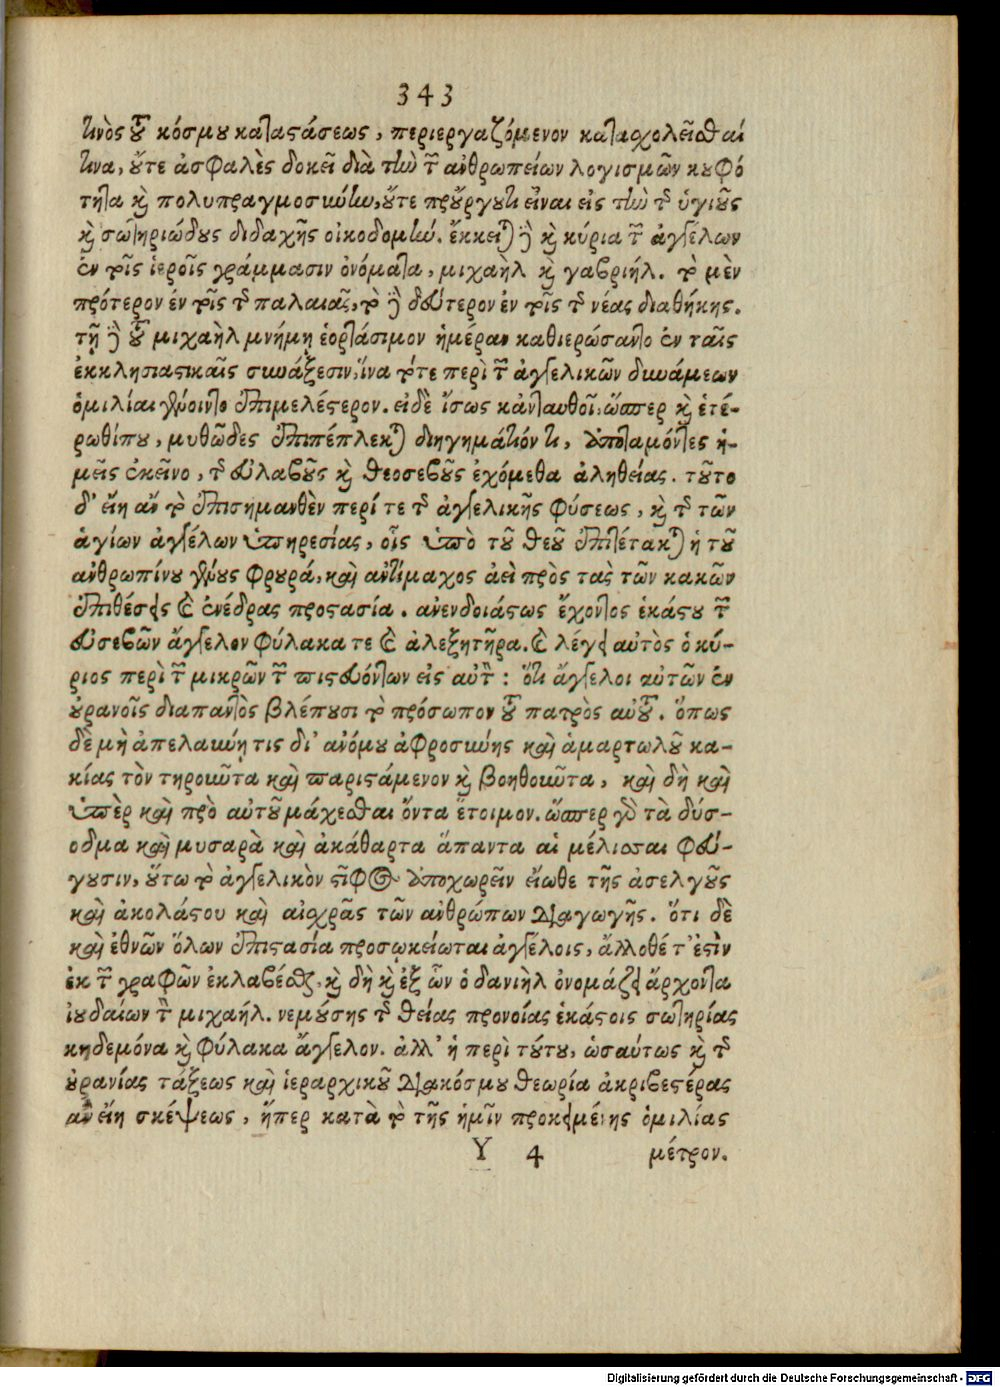 343
τινὸς τοῦ κόσμου καταστάσεως, περιεργαζόμενον κατασχολεῖσθαί
τινα, οὔτε ἀσφαλὲς δοκεῖ διὰ τὴν τῶν ἀνθρωπείων λογισμῶν κουφό
τητα καὶ πολυπραγμοσύνην, οὔτε προὔργου τι εἶναι εἰς τὴν τῆς ὑγιοῦς
καὶ σωτηριώδους διδαχῆς οἰκοδομήν. ἔκκειται δὲ καὶ κύρια τῶν ἀγγέλων
ἐν τοῖς ἱεροῖς γράμμασιν ὀνόματα, μιχαὴλ καὶ γαβριήλ. τὸ μὲν
πρότερον ἐν τοῖς τῆς παλαιᾶς, τὸ δὲ δεύτερον ἐν τοῖς τῆς νέας διαθήκης.
τῇ δὲ τοῦ μιχαὴλ μνήμῃ ἑορτάσιμον ἡμέραν καθιερώσαντο ἐν ταῖς
ἐκκλησιαστικαῖς συνάξεσιν, ἵνα τότε περὶ τῶν ἀγγελικῶν δυνάμεων
ὁμιλίαι γένοιντο ἐπιμελέστερον. εἰ δὲ ἴσως κἀνταυθοῖ, ὥσπερ καὶ ἑτέ-
ρωθί που, μυθῶδες ἐπιπέπλεκται διηγημάτιόν τι, ἀποταμόντες ἡ-
μεῖς ἐκεῖνο, τῆς εὐλαβοῦς καὶ θεοσεβοῦς ἐχόμεθα ἀληθείας. τοῦτο
δ' εἴη ἂν τὸ ἐπισημανθὲν περί τε τῆς ἀγγελικῆς φύσεως, καὶ τῆς τῶν
ἁγίων ἀγγέλων ὑπηρεσίας, οἷς ὑπὸ τοῦ θεοῦ ἐπιτέτακται ἡ τοῦ
ἀνθρωπίνου γένους φρουρά, καὶ ἀντίμαχος ἀεὶ πρὸς τὰς τῶν κακῶν
ἐπιθέσεις καὶ ἐνέδρας προστασία. ἀνενδοιάστως ἔχοντος ἑκάστου τῶν
εὐσεβῶν ἄγγελον φύλακα τε καὶ ἀλεξητῆρα. καὶ λέγει αὐτὸς ὁ κύ-
ριος περὶ τῶν μικρῶν τῶν πιστευόντων εἰς αὐτόν: ὅτι ἄγγελοι αὐτῶν ἐν
οὐρανοῖς διαπαντὸς βλέπουσι τὸ πρόσωπον τοῦ πατρὸς αὐτοῦ. ὅπως
δὲ μὴ ἀπελαύνῃ τις δι' ἀνόμου ἀφροσύνης καὶ ἁμαρτωλοῦ κα-
κίας τὸν τηροῦντα καὶ παριστάμενον καὶ βοηθοῦντα, καὶ δὴ καὶ
ὑπὲρ καὶ πρὸ αὐτοῦ μάχεσθαι ὄντα ἕτοιμον. ὥσπερ γὰρ τὰ δύσ-
οδμα καὶ μυσαρὰ καὶ ἀκάθαρτα ἅπαντα αἱ μέλισσαι φεύ-
γουσιν, οὕτω τὸ ἀγγελικὸν στῖφος ἀποχωρεῖν εἴωθε τῆς ἀσελγοῦς
καὶ ἀκολάστου καὶ αἰσχρᾶς τῶν ἀνθρώπων διαγωγῆς. ὅτι δὲ
καὶ ἐθνῶν ὅλων ἐπιστασία προσῳκείωται ἀγγέλοις, ἄλλοθέ τ' ἐστὶν
ἐκ τῶν γραφῶν ἐκλαβέσθαι, καὶ δὴ καὶ ἐξ ὧν ὁ δανιὴλ ὀνομάζει ἄρχοντα
ἰουδαίων τὸν μιχαήλ. νεμούσης τῆς θείας προνοίας ἑκάστοις σωτηρίας
κηδεμόνα καὶ φύλακα ἄγγελον. ἀλλ' ἡ περὶ τούτου, ὡσαύτως καὶ τῆς
οὐρανίας τάξεως καὶ ἱεραρχικοῦ διακόσμου θεωρία ἀκριβεστέρας
ἂν εἴη σκέψεως, ἤπερ κατὰ τὸ τῆς ἡμῖν προκειμένης ὁμιλίας
Y 4 μέτρον.
Digitalisierung gefördert durch die Deutsche Forschungsgemeinschaft - DFG